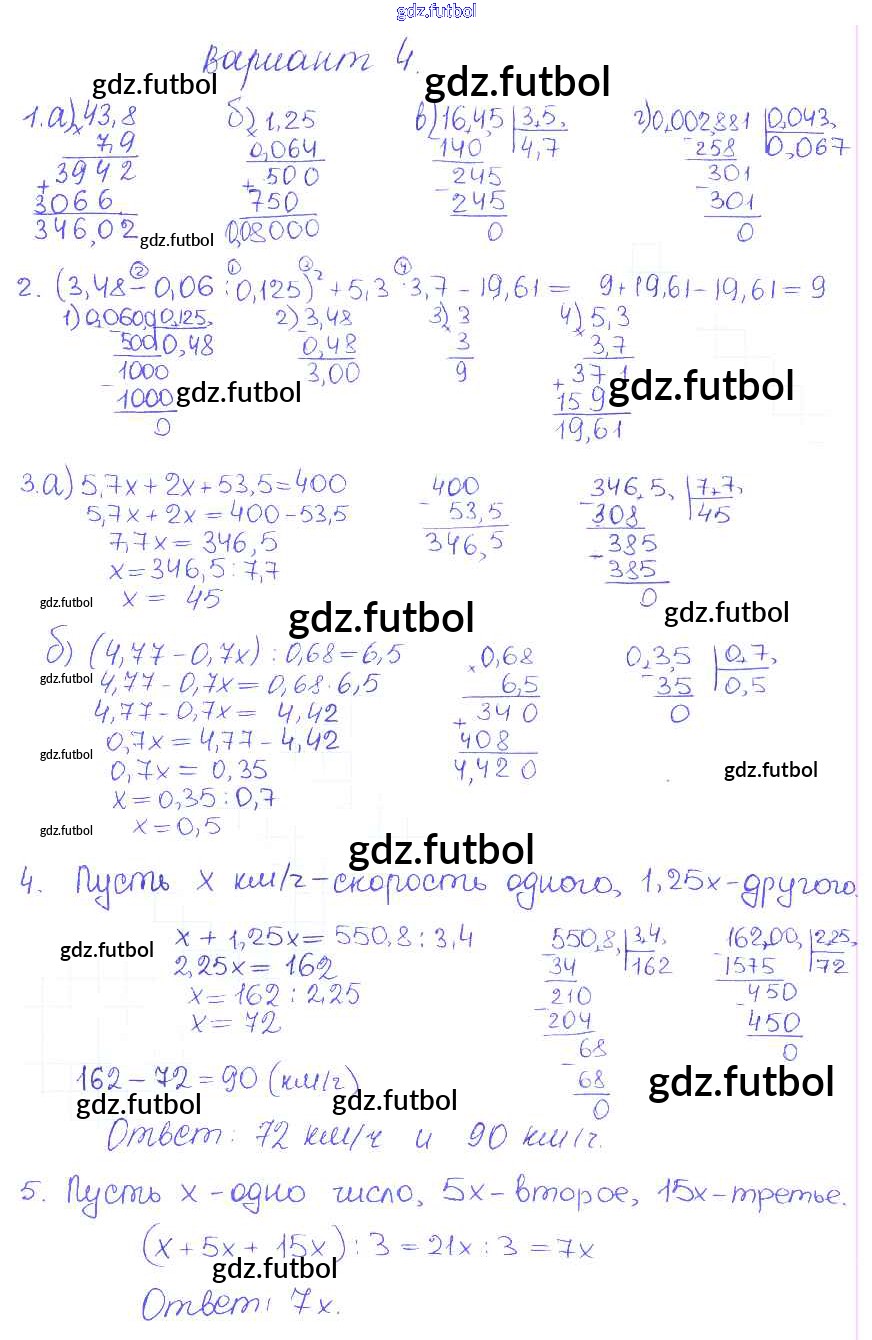 gdz.futbol
вариант 4.
gdz.futbol gdz.futbol
1.а) 43,8 б) 1,25 в) 16,4,5 | 3,5, г) 0,002,881 | 0,043,
× 7,9 × 0,064 - 140 | 4,7 - 258 | 0,067
+ 3942 + 500 - 245 301
3066 750 245 - 301
346,02 0,08000 0 0
gdz.futbol
2. (3,48 - 0,06 : 0,125)² + 5,3 · 3,7 - 19,61 = 9 + 19,61 - 19,61 = 9
② ① ③ ④
1) 0,060,0 | 0,125, 2) 3,48 3) 3 4) 5,3
- 500 | 0,48 - 0,48 × 3 × 3,7
- 1000 3,00 9 + 371
1000 159
0 19,61
gdz.futbol gdz.futbol
3.а) 5,7x + 2x + 53,5 = 400 400 346,5, | 7,7,
5,7x + 2x = 400 - 53,5 - 53,5 - 308 | 45
7,7x = 346,5 346,5 - 385
x = 346,5 : 7,7 385
x = 45 0
gdz.futbol gdz.futbol gdz.futbol
б) (4,77 - 0,7x) : 0,68 = 6,5 × 0,68 0,3,5 | 0,7,
gdz.futbol 4,77 - 0,7x = 0,68 · 6,5 6,5 - 35 | 0,5
4,77 - 0,7x = 4,42 + 340 0
0,7x = 4,77 - 4,42 408
gdz.futbol 0,7x = 0,35 4,420 gdz.futbol
x = 0,35 : 0,7
gdz.futbol x = 0,5
gdz.futbol
4. Пусть x км/ч - скорость одного, 1,25x - другого.
x + 1,25x = 550,8 : 3,4 550,8, | 3,4, 162,00, | 2,25,
gdz.futbol 2,25x = 162 - 34 | 162 - 1575 | 72
x = 162 : 2,25 210 - 450
x = 72 - 204 450
68 0
162 - 72 = 90 (км/ч) - 68
0
gdz.futbol gdz.futbol gdz.futbol
Ответ: 72 км/ч и 90 км/ч.
5. Пусть x - одно число, 5x - второе, 15x - третье.
(x + 5x + 15x) : 3 = 21x : 3 = 7x
gdz.futbol
Ответ: 7x.